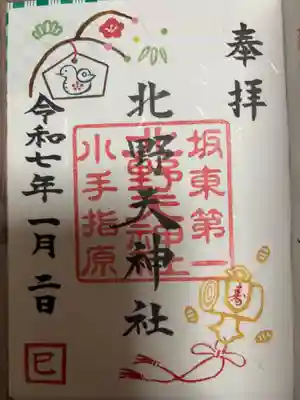 奉拝
坂東第一
北野天神
小手指原
北野天神社
令和七年一月二日
寿
巳